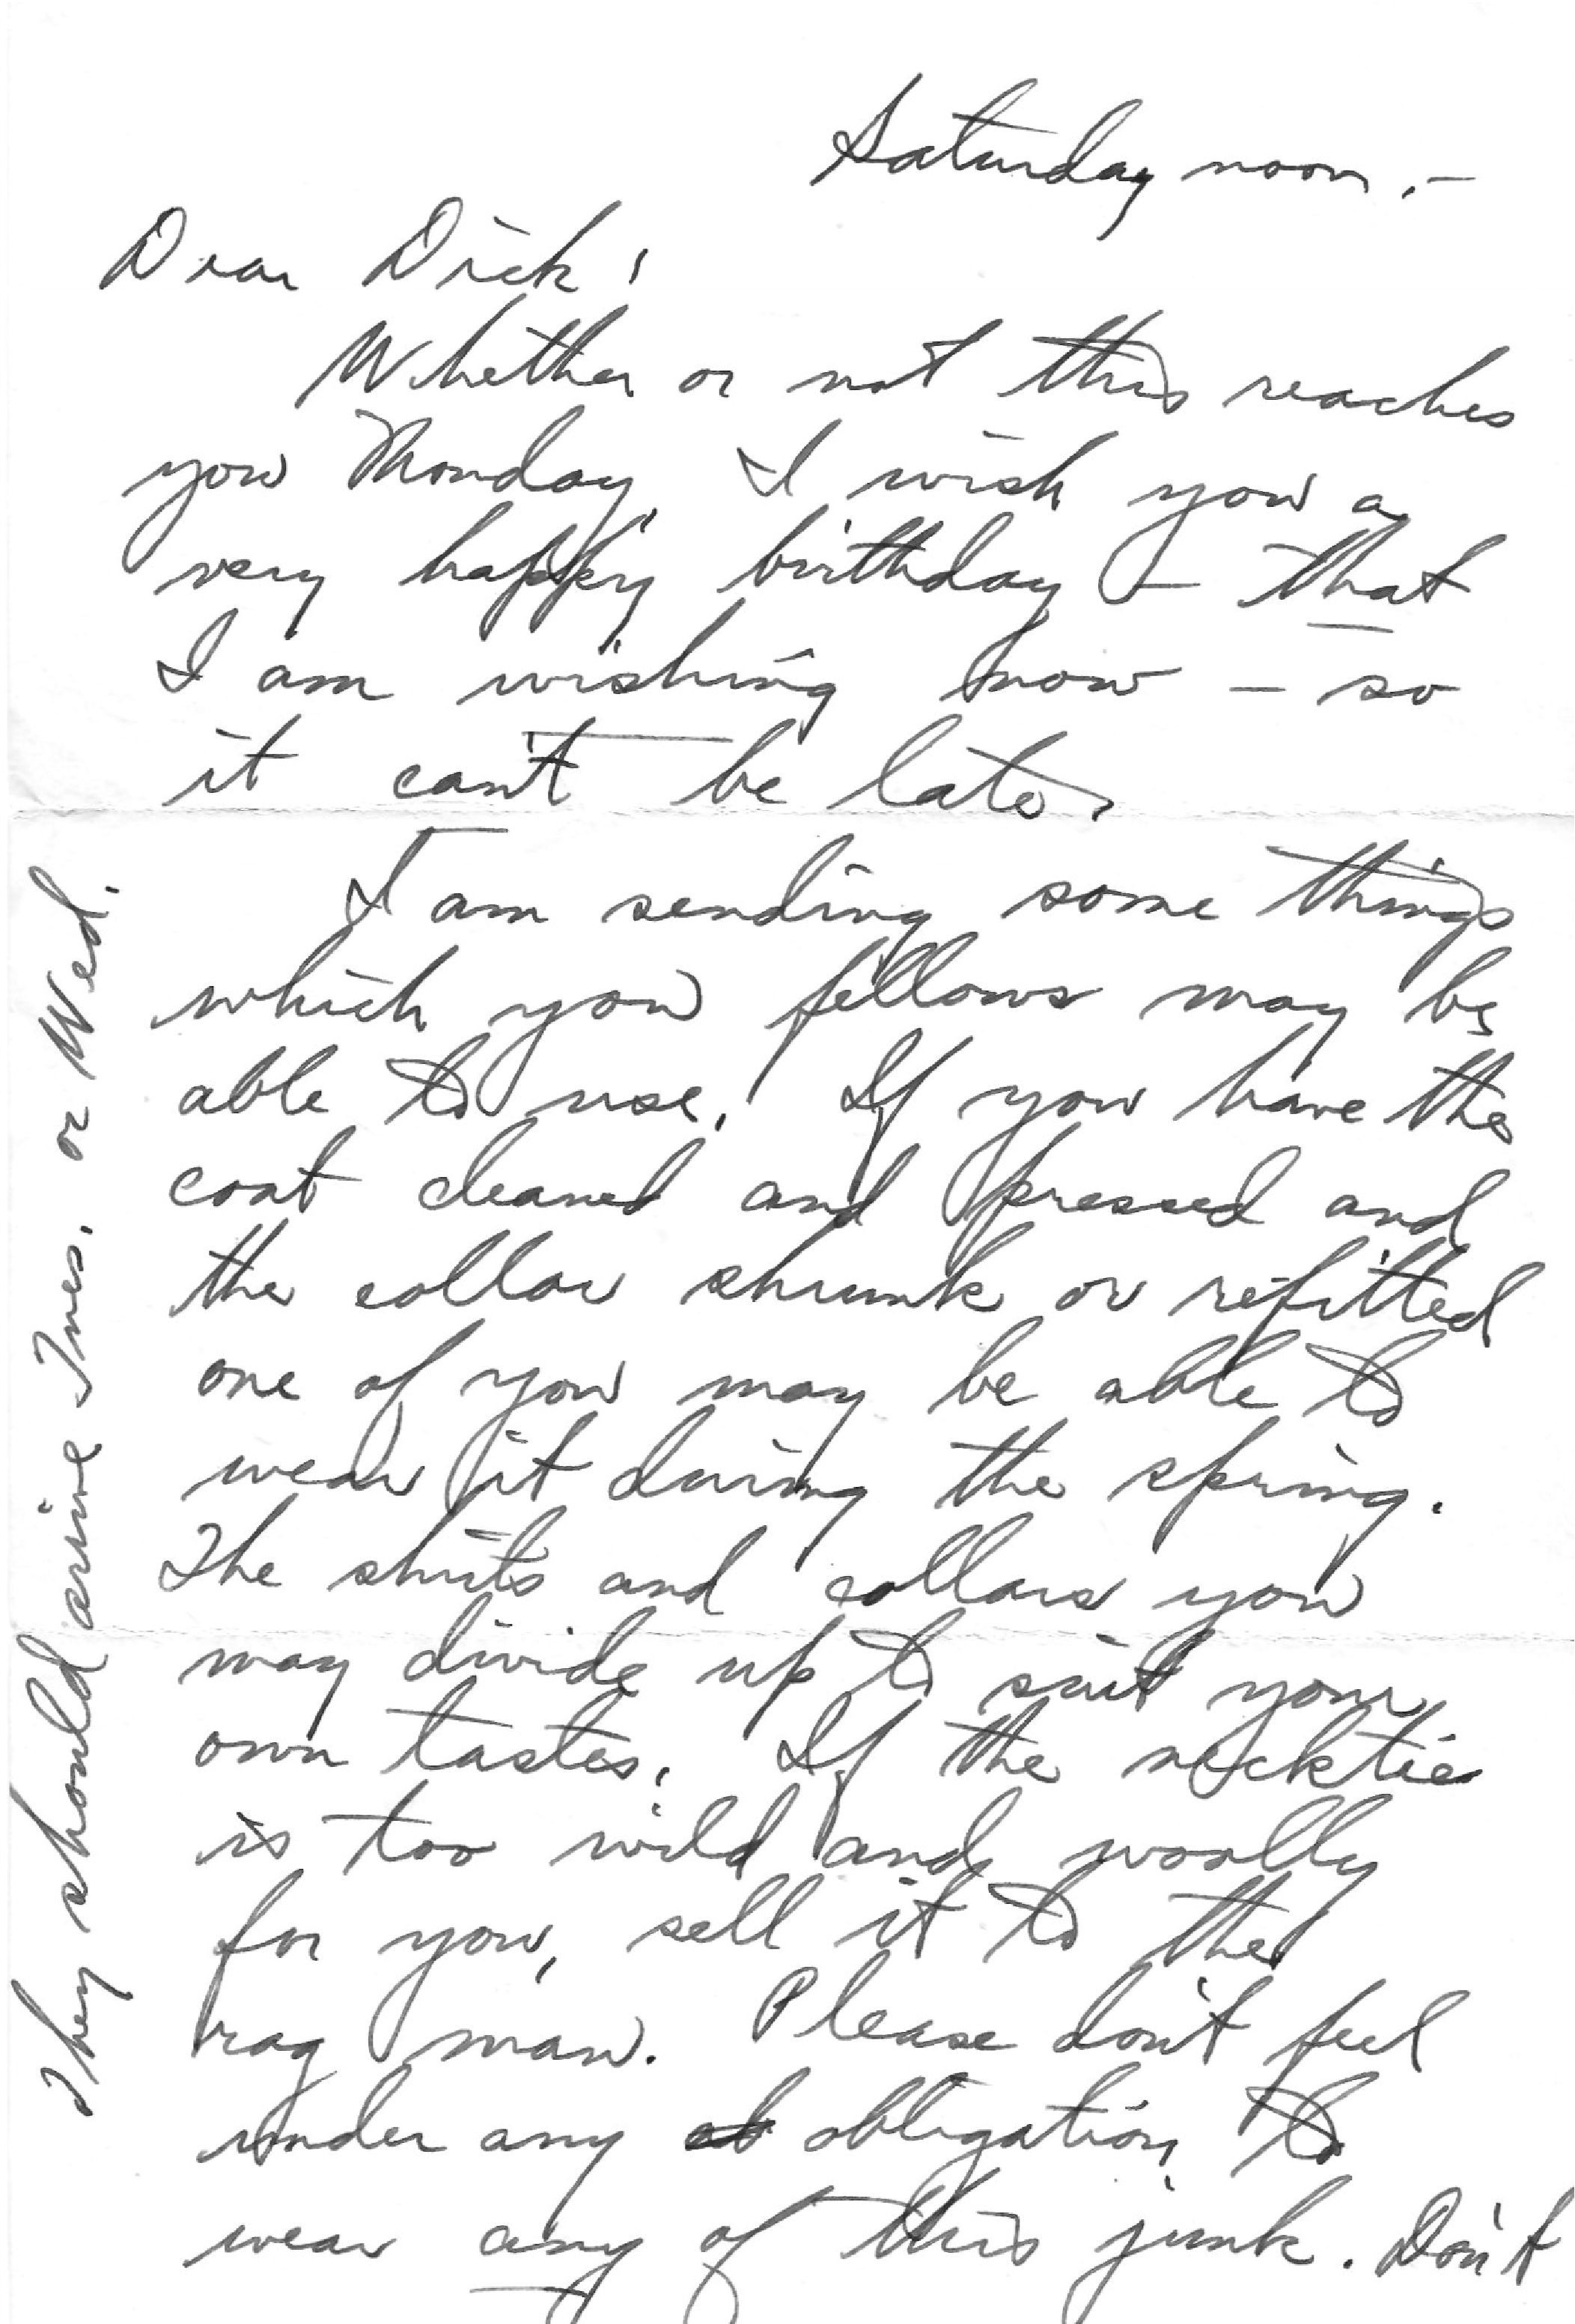 Saturday noon.–
Dear Dick:
Whether or not this reaches
you Monday, I wish you a
very happy birthday – that
I am wishing now – so
it can't be late.
I am sending some things
which you fellows may be
able to use. If you have the
coat cleaned and pressed and
the collar shrunk or refitted
one of you may be able to
wear it during the spring.
The shirts and collars you
may divide up to suit your
own tastes. If the necktie
is too wild and woolly
for you, sell it to the
rag man. Please don't feel
under any ob obligation to
wear any of this junk. Don't
They should arrive Tues. or Wed.